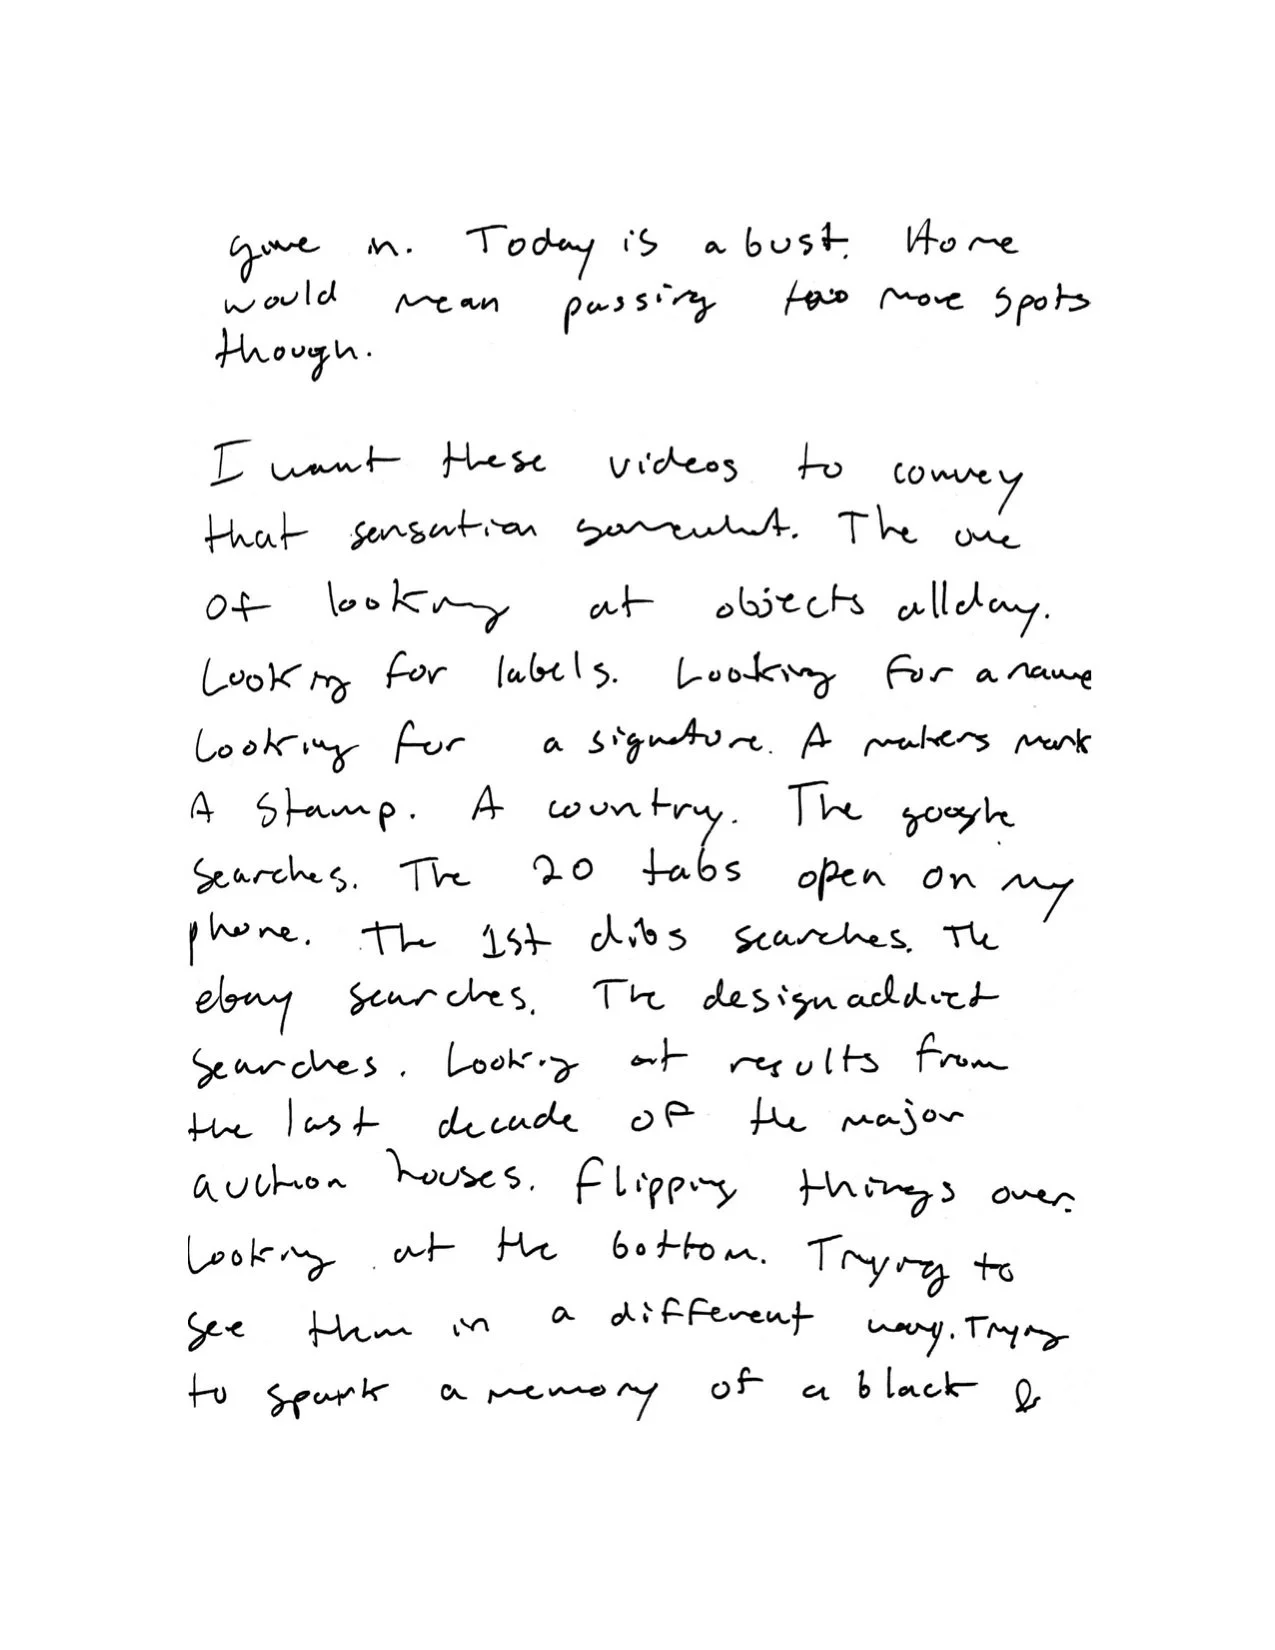 give in. Today is a bust. Home
would mean passing two more spots
though.
I want these videos to convey
that sensation somewhat. The one
of looking at objects all day.
Looking for labels. Looking for a name
Looking for a signature. A makers mark
A stamp. A country. The google
searches. The 20 tabs open on my
phone. The 1st dibs searches. The
ebay searches. The designaddict
searches. Looking at results from
the last decade of the major
auction houses. Flipping things over.
Looking at the bottom. Trying to
see them in a different way. Trying
to spark a memory of a black &